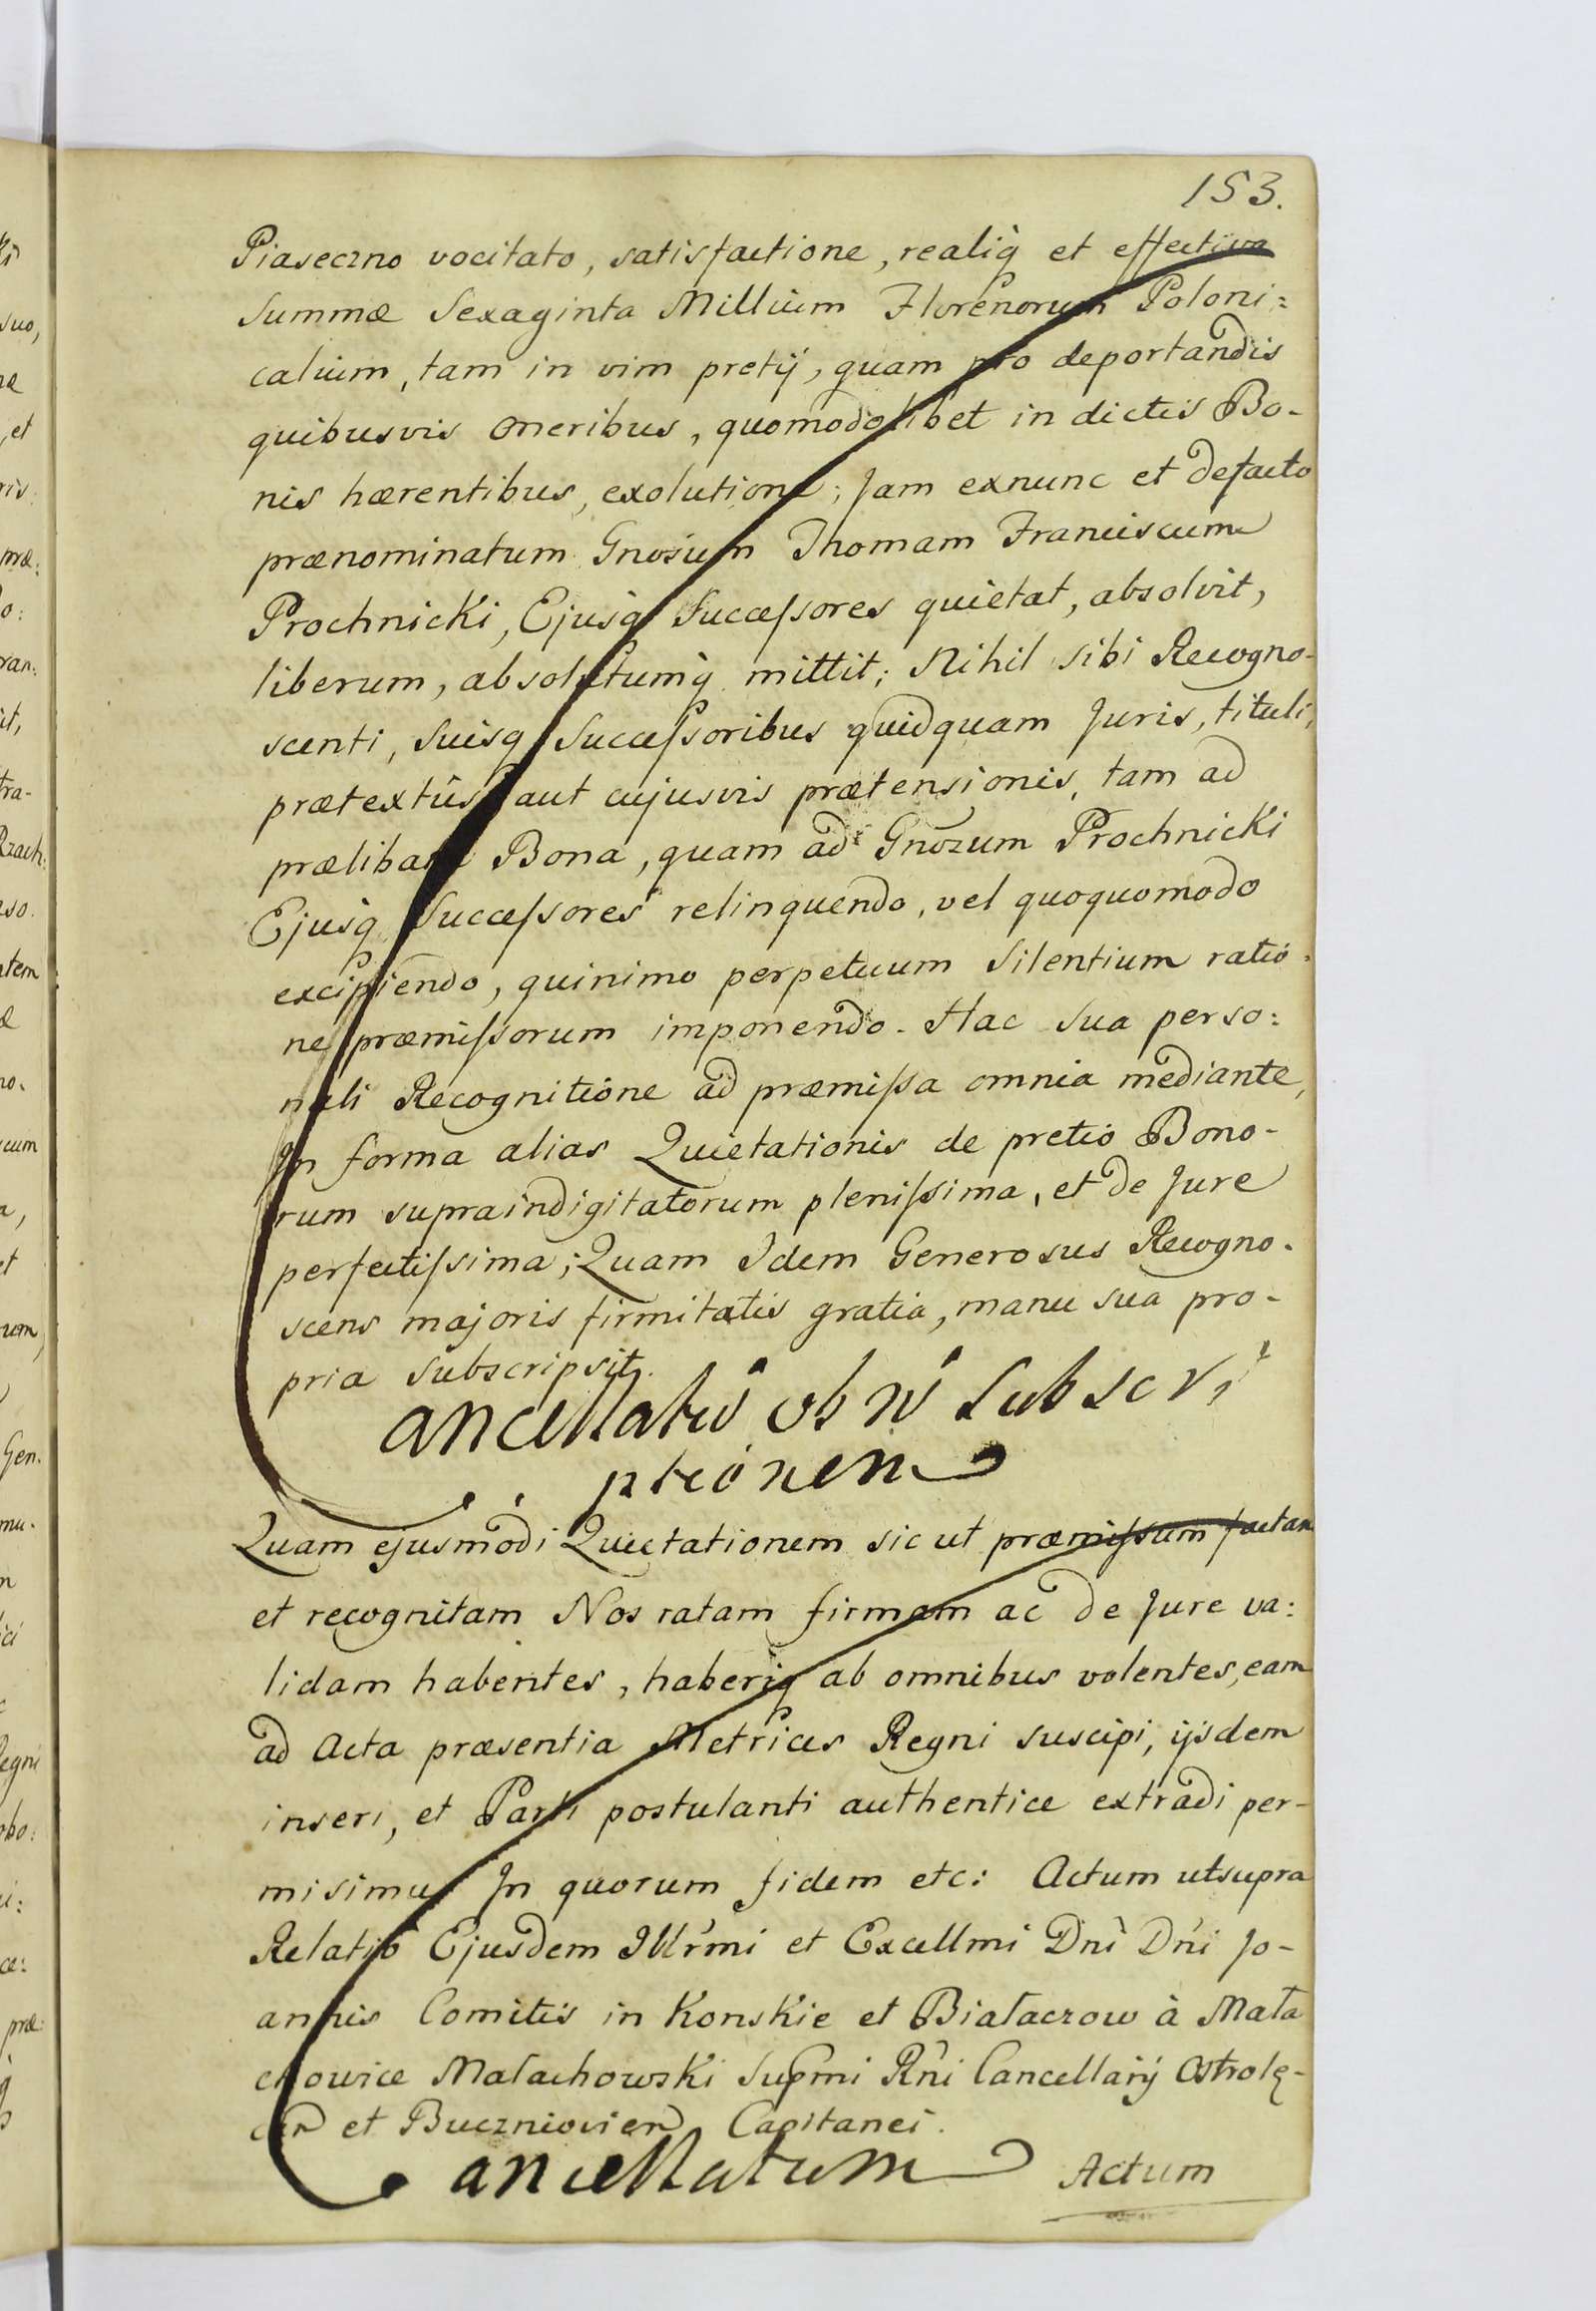 153.
Piaseczno vocitato, satisfactione, realiq̀ et effectiva
Summæ Sexaginta Millium Florenorum Poloni:
calium, tam in vim pretij, quam pro deportandis
quibusvis oneribus, quomodolibet in dictis Bo-
nis hærentibus, exolutione; Jam exnunc et defacto
prænominatum Gnosum Thomam Franciscum
Prochnicki, Ejusq̀ Succeſsores quietat, absolvit,
liberum, absolutumq̀ mittit; Nihil sibi Recogno-
scenti, Suisq̀ Succeſsoribus quidquam Juris, tituli,
prætextûs aut cujusvis prætensionis, tam ad
prælibata Bona, quam ad Gnosum Prochnicki
Ejusq̀ Succeſsores relinquendo, vel quoquomodo
excipiendo, quinimo perpetuum Silentium ratio:
ne præmiſsorum imponendo. Hac Sua perso:
nali Recognitione ad præmiſsa omnia mediante,
In forma alias Quietationis de pretio Bono-
rum supraindigitatorum pleniſsima, et de Jure
perfectiſsima; Quam Idem Generosus Recogno-
scens majoris firmitatis gratia, manu sua pro-
pria Subscripsit.
Cancellatũ ob nõ Subscri
ptionem
Quam ejusmodi Quietationem sic ut præmiſsum factam
et recognitam Nos ratam firmam ac de Jure va:
lidam habentes, haberiq̀ ab omnibus volentes, eam
ad Acta præsentia Metrices Regni suscipi, ijsdem
inseri, et Parti postulanti authentice extradi per-
misimus In quorum fidem etc: Actum utsupra
Relatio Ejusdem Illr̃mi et Excellmi Dnì Dńi Jo-
annis Comitis in Konskie et Białaczow à Mała
chowice Małachowski Supmi Rñi Cancellarij Ostrolę-
cen et Buczniovien Capitanei.
Cancellatum
Actum